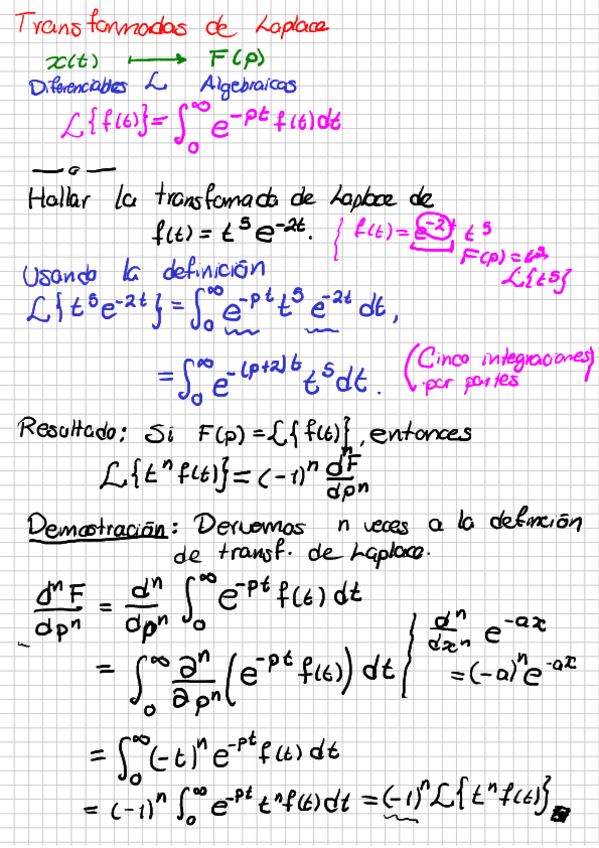 Transformadas de Laplace
x(t) ⟼ F(p)
Diferenciables L Algebraicas
L{f(t)} = ∫₀^∞ e^{-pt} f(t) dt
Hallar la transfomada de Laplace de
f(t) = t⁵ e^{-2t}. { f(t) = e^{-2t} t⁵
F(p) =
L{t⁵}
Usando la definición
L{t⁵ e^{-2t}} = ∫₀^∞ e^{-pt} t⁵ e^{-2t} dt,
= ∫₀^∞ e^{-(p+2)t} t⁵ dt. (Cinco integraciones
por partes)
Resultado: Si F(p) = L{f(t)}, entonces
L{tⁿ f(t)} = (-1)ⁿ dⁿF/dpⁿ
Demostración: Derivemos n veces a la definción
de transf. de Laplace.
dⁿF/dpⁿ = dⁿ/dpⁿ ∫₀^∞ e^{-pt} f(t) dt
= ∫₀^∞ ∂ⁿ/∂pⁿ (e^{-pt} f(t)) dt { dⁿ/dxⁿ e^{-ax}
= (-a)ⁿ e^{-ax}
= ∫₀^∞ (-t)ⁿ e^{-pt} f(t) dt
= (-1)ⁿ ∫₀^∞ e^{-pt} tⁿ f(t) dt = (-1)ⁿ L{tⁿ f(t)}. ■